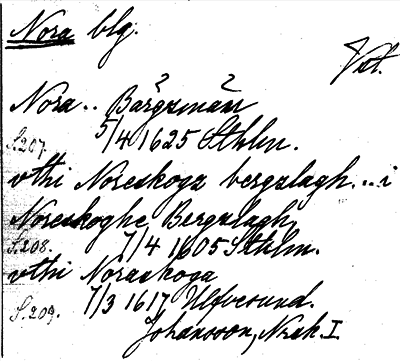 Nora blg.
Vstl.
Nora.. Bärgzmän
5/4 1625 Sthlm.
S.207.
vthi Noreskogz bergzlagh...i
Noreskoghe Bergzlagh
S.208. 7/4 1605 Sthlm.
vthi Noraskoga
S.209. 7/3 1617 Ulfvesund.
Johansson, Norask. I